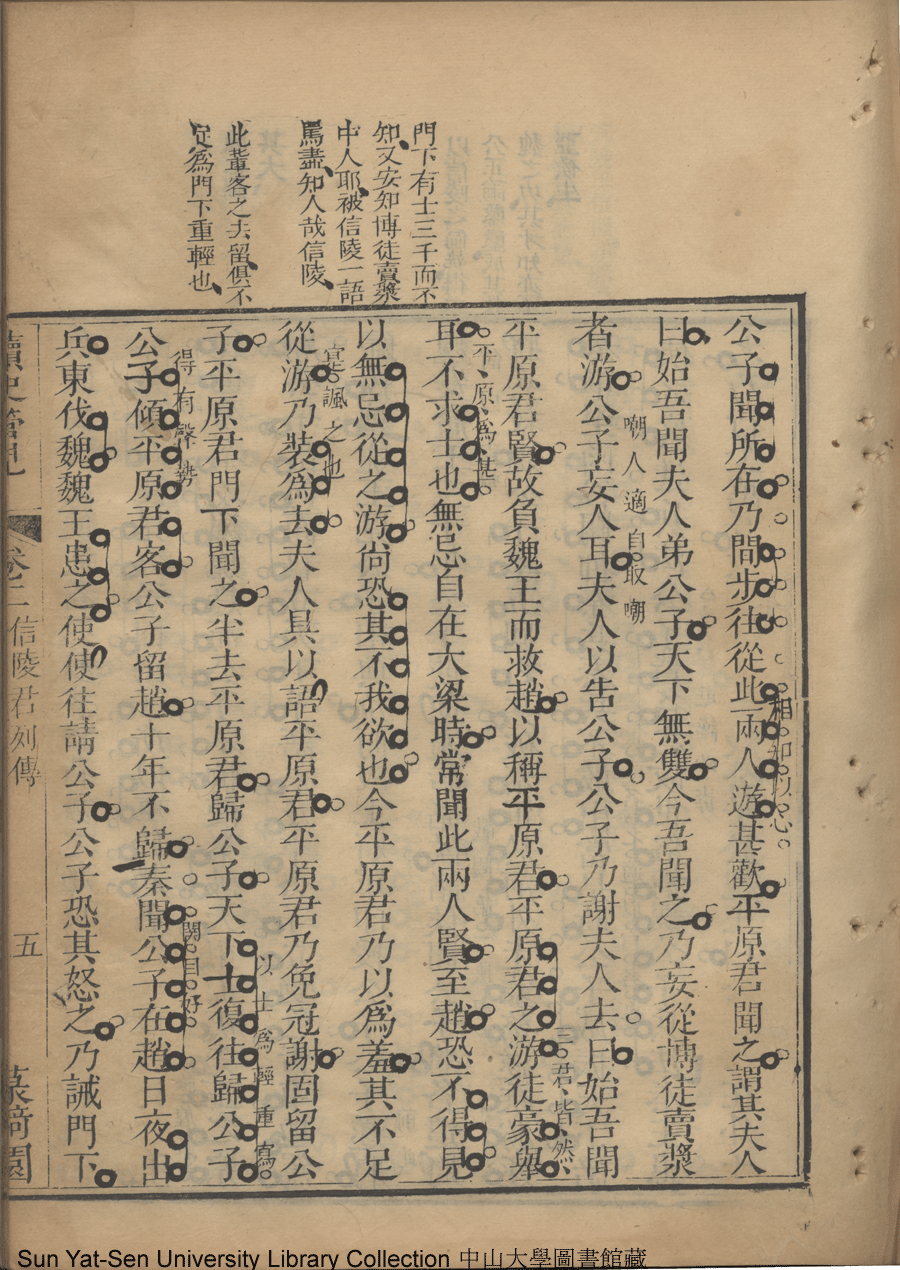 門下有士三千而不
知又安知博徒賣漿
中人耶被信陵一語
罵盡知人哉信陵
此輩客之去留俱不
足為門下重輕也
公子聞所在乃間步往從此兩人遊甚歡平原君聞之謂其夫人
相知以心
曰始吾聞夫人弟公子天下無雙今吾聞之乃妄從博徒賣漿
嘲人適自取嘲
者游公子妄人耳夫人以告公子公子乃謝夫人去曰始吾聞
三君皆然
平原君賢故負魏王而救趙以稱平原君平原君之游徒豪舉
平原為甚
耳不求士也無忌自在大梁時常聞此兩人賢至趙恐不得見
以無忌從之游尚恐其不我欲也今平原君乃以為羞其不足
寔諷之也
從游乃裝為去夫人具以語平原君平原君乃免冠謝固留公
以士為輕重寫
子平原君門下聞之半去平原君歸公子天下士復往歸公子
得有聲勢
關目好
公子傾平原君客公子留趙十年不歸秦聞公子在趙日夜出
兵東伐魏魏王患之使使往請公子公子恐其怒之乃誡門下
讀史管見
卷二
信陵君列傳
五
園
Sun Yat-Sen University Library Collection 中山大學圖書館藏